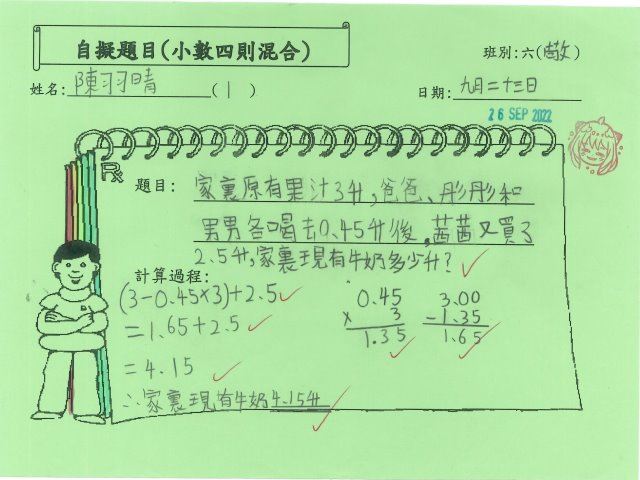 自擬題目(小數四則混合)
班別:六(敬)
姓名:陳羽晴(1)
日期:九月二十三日
26 SEP 2022
題目:家裏原有果汁3升,爸爸、彤彤和
男男各喝去0.45升後,茜茜又買了
2.5升,家裏現有牛奶多少升?
計算過程:
(3-0.45×3)+2.5
=1.65+2.5
=4.15
∴家裏現有牛奶4.15升
0.45
× 3
1.35
3.00
-1.35
1.65